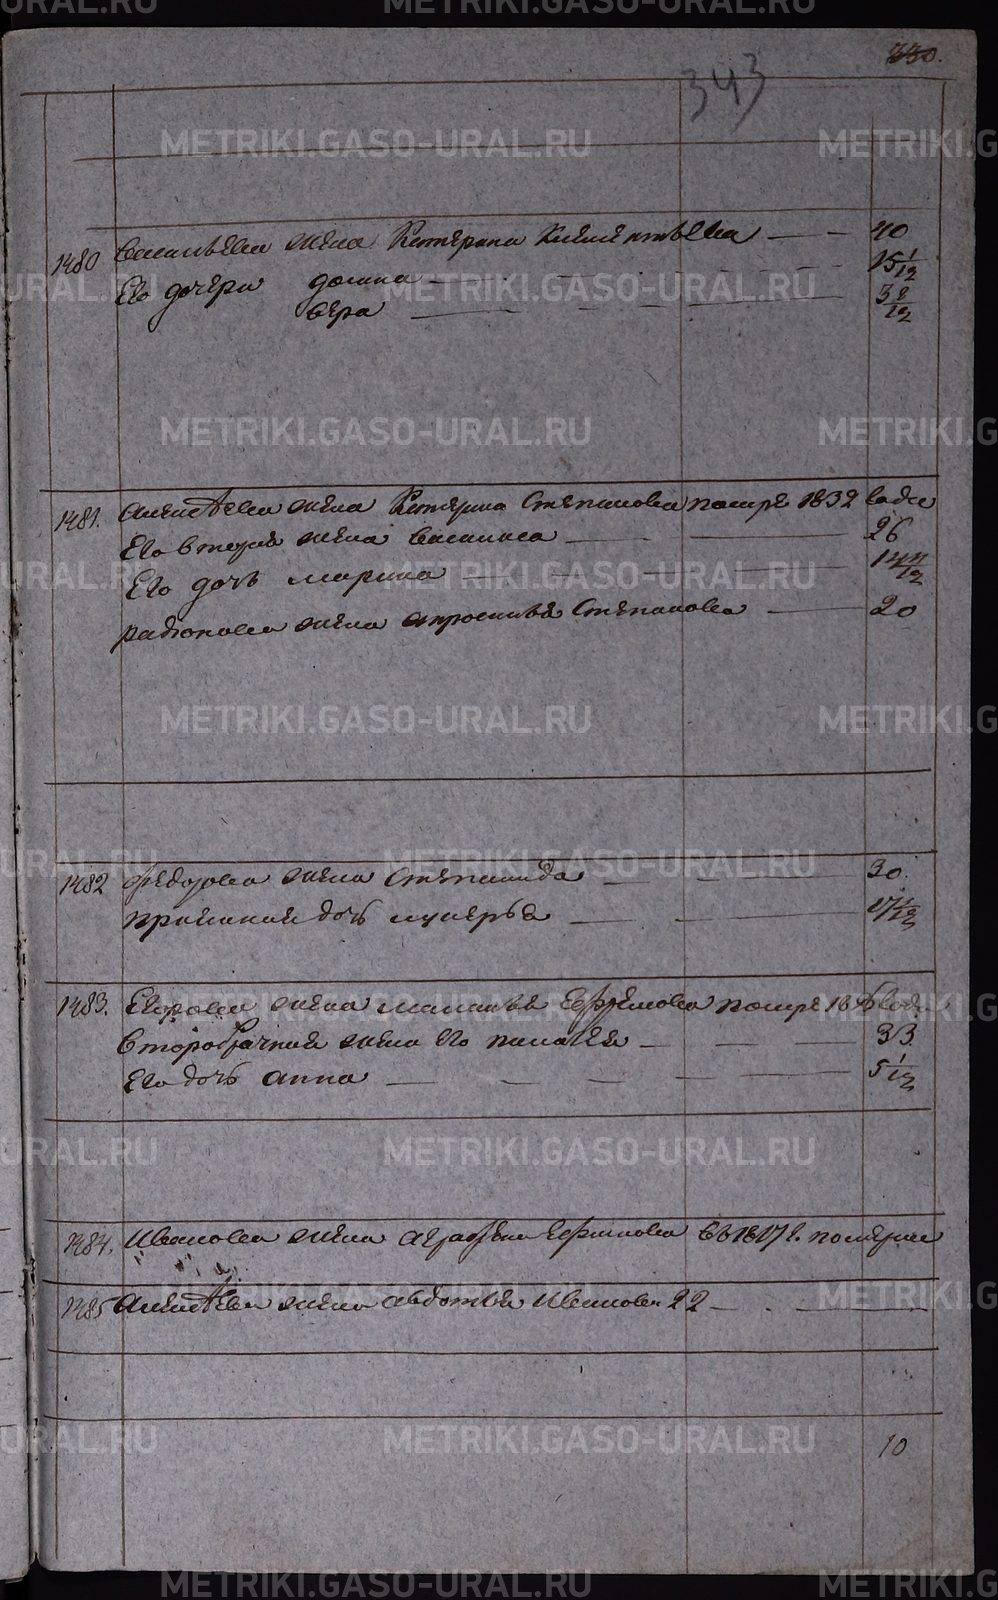 330.
343
1480 Васильева жена Катерина Климентьева 40
Его дочери домна 15 1/12
вера 3 8/12
1481. Алексеева жена Катерина Степанова помре 1832 года
Его вторая жена василиса 26
Его дочь марина 14/12
радионова жена апросинья Степанова 20
1482 федорова жена степанида 30.
приемная дочь лукерья 17 1/12
1483. Егорова жена маланья Ефремова помре
второбрачная жена его палагея 33
Его дочь анна 5 1/12
1484. Иванова жена аграфена Ефимова въ 1817 г. померла
1485 Алексеева жена авдотья Иванова 22
10
METRIKI.GASO-URAL.RU